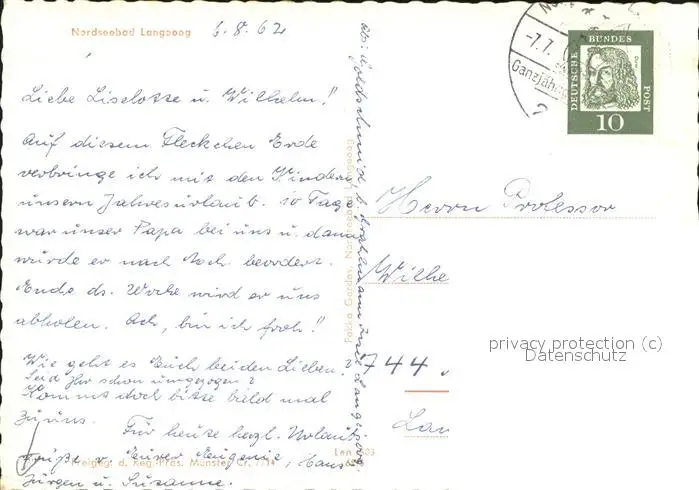 Nordseebad Langeoog
6.8.62
Liebe Liselotte u. Wilhelm!
Auf diesem Fleckchen Erde
verbringe ich mit den Kindern
unsern Jahresurlaub. 10 Tage
war unser Papa bei uns u. dann
wurde er nach Hoch. beordert.
Ende ds. Woche wird er uns
abholen. Ach, bin ich froh!
Wie geht es Euch beiden Lieben?
Seid Ihr schon umgezogen?
Kommt doch bitte bald mal
zu uns.
Für heute herzl. Urlaub
grüße v. Eurer Eugenie, Hans
Jürgen u. Susanne.
Freigeg. d. Reg.-Präs. Münster Cr. 7714
Len
Fokko Gerdes, Nordseebad Langeoog
Abs. Goldschmidt b. Insel Langeoog
-7.7.
Ganzjähr
DEUTSCHE BUNDES POST
Dürer
10
Herrn Professor
Wilhe
744
Lan
privacy protection (c)
Datenschutz